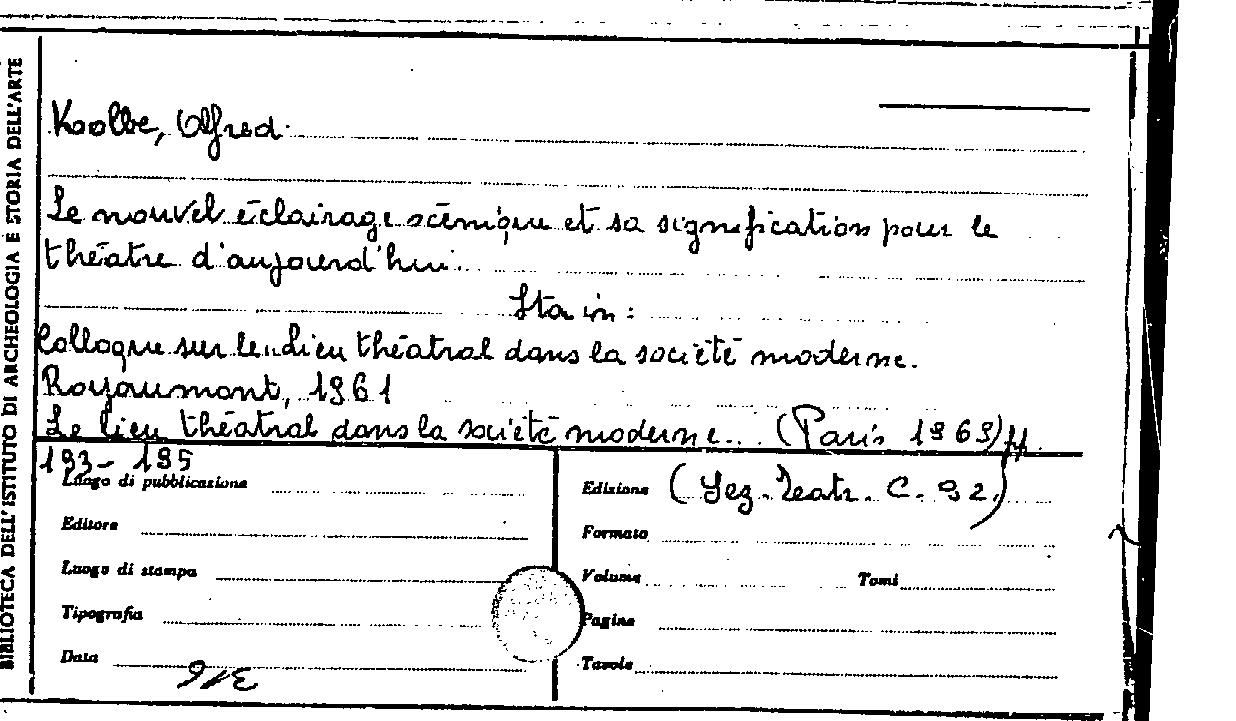 BIBLIOTECA DELL'ISTITUTO DI ARCHEOLOGIA E STORIA DELL'ARTE
Koolbe, Alfred.
Le nouvel éclairage scénique et sa signification pour le
théatre d'aujourd'hui.
Sta in:
Colloque sur le Lieu théatral dans la société moderne.
Royaumont, 1961
Le lieu théatral dans la société moderne... (Paris 1969) pp.
193-195
Luogo di pubblicazione
Edizione (Sez. Teatr. C. 92)
Editore
Formato
Luogo di stampa
Volume Tomi
Tipografia
Pagine
Data
Tavole